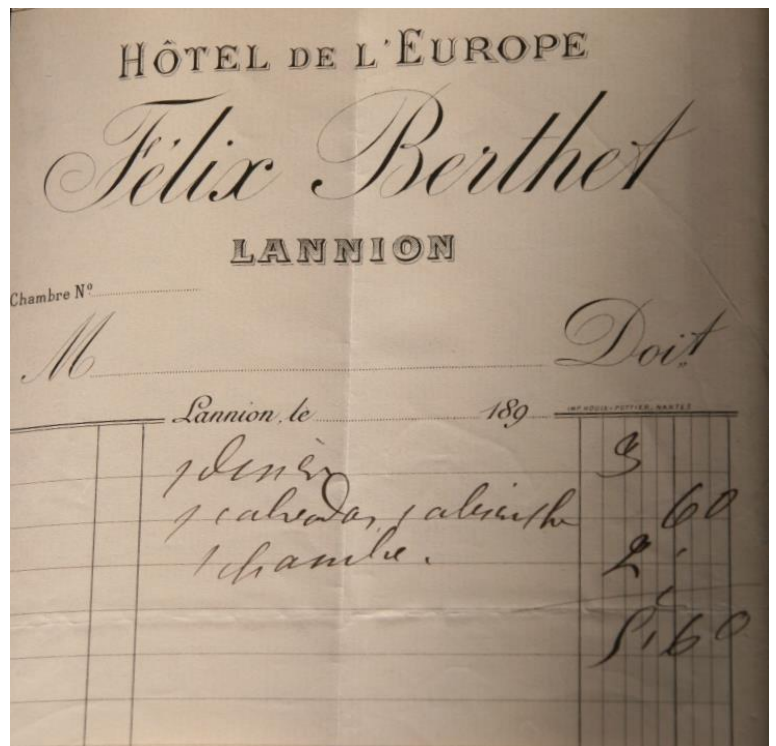 HÔTEL DE L'EUROPE
Félix Berthet
LANNION
Chambre Nº
M Doit
Lannion, le 189
IMP. HOUIS-POTTIER, NANTES
1 diner 3
1 calvados, 1 absinthe 60
1 chambre. 2
5,60